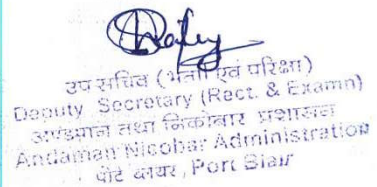 उप सचिव (भर्ती एवं परिक्षा)
Deputy Secretary (Rect. & Examn)
अण्डमान तथा निकोबार प्रशासन
Andaman Nicobar Administration
पोर्ट ब्लायर, Port Blair